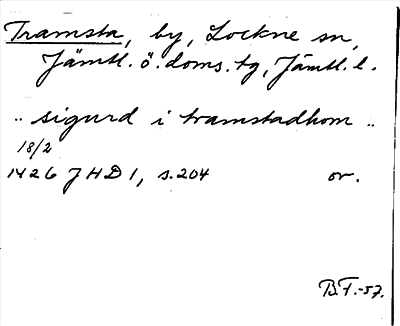 Tramsta, by, Lockne sn,
Jämtl. ö. doms. tg, Jämtl. l.
.. sigurd i tramstadhom ..
18/2
1426 JHD 1, s. 204 or.
B.F.-57.